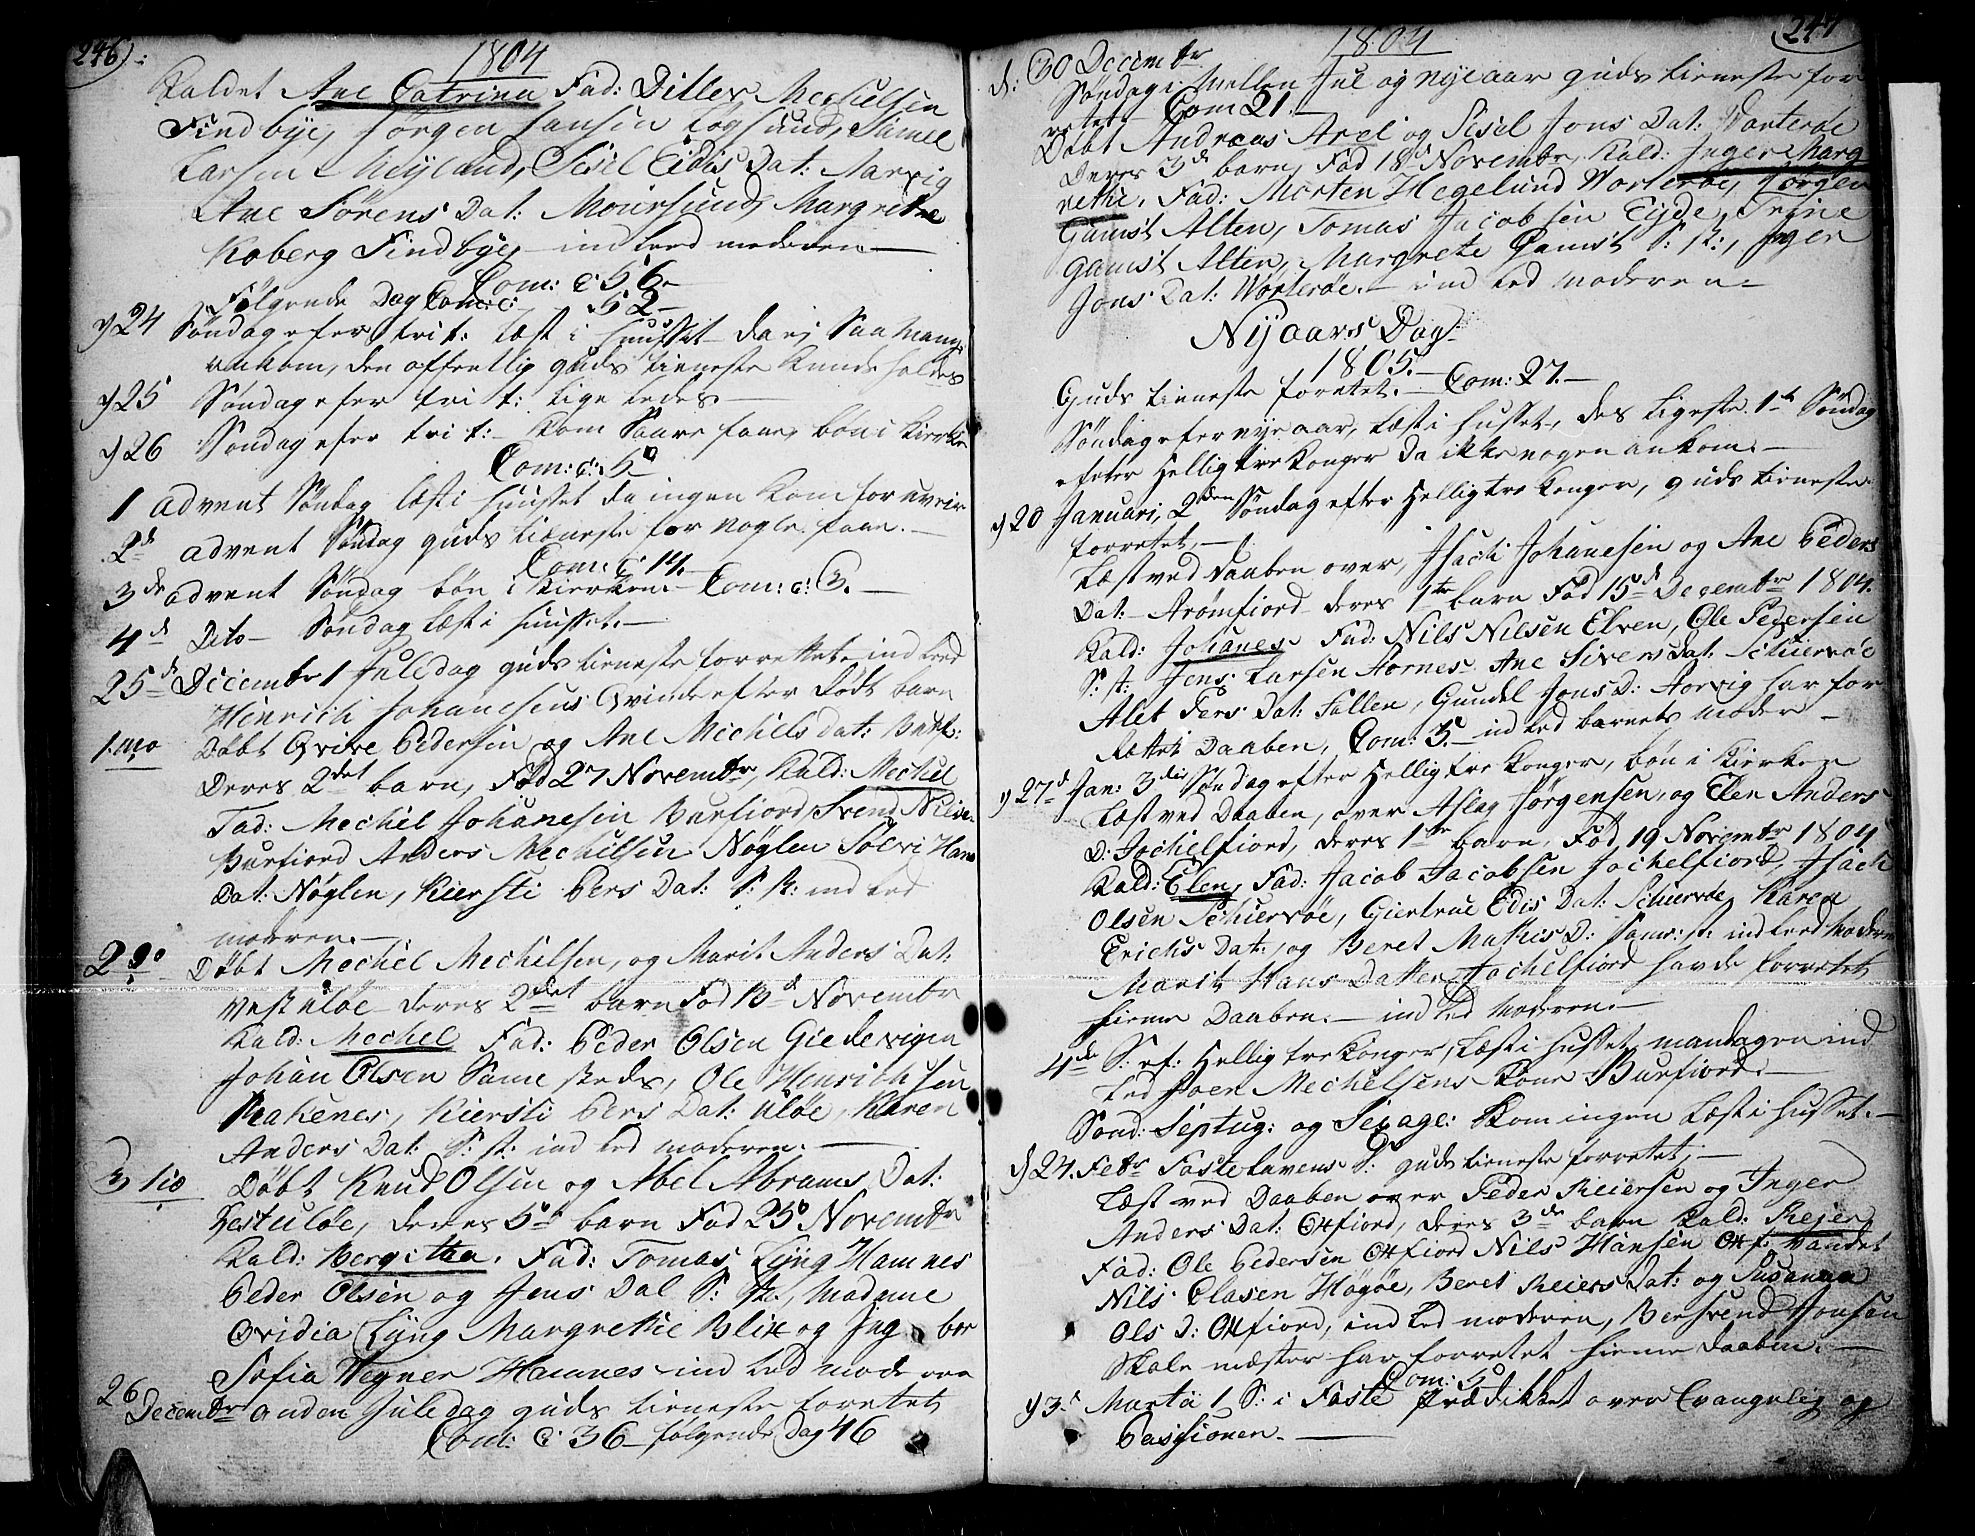 246).
1804
Kaldet Ane Catrina Fad: Ditlev Mechelsen
Findbye, Jørgen Jansen Logsund, Samel
Larsen Meyland, Sisel Eidis Dat: Marvig
Ane Sørens Dat: Moursund, Margrethe
Koberg Findbye, – ind Led moderen –
Com: C 56 –
Følgende Dag Com: c: 52 –
d 24 Søndag efter trit: læst i huusset da ej saa mange
ankom, den offentlig guds tieneste kunde holdes
d 25 Søndag efter trit: lige ledes –
d 26 Søndag efter trit: – kom saare faae, bøn i kierken
Com: c: 5
1 advent Søndag læst i huusset da ingen kom for uveir
2d advent Søndag guds tieneste for nogle faae. –
Com: C 14. –
3de advent Søndag bøn i kierken – Com: c: 3. –
4d Dito – Søndag læst i huusset. –
25d Decembr 1 Juledag guds tieneste forrettet – ind Led
Hinrich Johanesens Qvinde efter Død barn
1mo Døbt Qvive Pedersen og Ane Mechels Dat: Burf:
Deres 2det barn, Fød 27 Novembr, Kald: Mechel
Fad: Mechel Johanesen Burfiord, Svend Nilsen
Burfiord Anders Mechelsen Nøglen Sølvi Hans
Dat: Nøglen, Kiersti Pers Dat: S: st: ind Led
moderen. –
2do Døbt Mechel Mechelsen, og Marit Anders Dat:
Vest uløe – deres 2det barn Fød 13d Novembr
Kald: Mechel Fad: Peder Olsen Giedervigen
Johan Olsen Samesteds, Ole Henrichsen
Rakenes, Kiersti Pers Dat: uløe, Karen
Anders Dat: S: st: ind Led moderen. –
3tio Døbt Knud Olsen og Abel Abrams Dat:
Vestuløe, deres 5d barn Fød 25d Novembr
Kald: Bergitha. Fad: Tomas Lyng Hamnes
Peder Olsen og Jens Dal S: st:, Madame
Ovidia Lyng Margrethe Blix og Ingebor
Sofia Wegner Hamnes – ind Led moderen
26 Decembr anden Juledag guds tieneste forettet
Com: C: 36 – følgende Dag 46
247
1804
d: 30 Decembr
Søndag i mellem Jul og nyeaar guds tieneste for
rettet – Com 21. –
Døbt Andreas Arel og Sisel Jons Dat: Vorterøe
Deres 3d barn, Fød 18d Novembr, Kald: Inger Marg
rethe, Fad: Morten Hegelund Vorterøe, Jørgen
Gamst Alten, Tomas Jacobsen Eyde, Trine
Gamst Alten, Margrete Gamst S: st:, Inger
Jons Dat: Worterøe. – ind Led moderen –
Nyaars Dag:
1805. –
Guds tieneste foretet. – Com: 27. –
Søndag efter nye aar, Læst i husset, des ligeste 1te Søndag
efter Hellig tre konger da ikke nogen ankom. –
d 20 Januari, 2den Søndag efter Hellig tre konger, guds tieneste
forretet. –
Læst ved Daaben over, Isach Johanesen og Ane Peders
Dat: Arømfiord – deres 1te barn Fød 15d Decembr 1804.
Kald: Johanes Fad: Nils Nilsen Elven, Ole Pedersen
S: st: Jens Larsen Aornes Ane Sivers Dat: Schiervøe
Alet Pers Dat: Fallen, Gundel Jons D: Aorvig har for
rettet Daaben, Com: 5. – ind Led barnets moder –
d 27d Jan: 3die Søndag efter Hellig tre konger, bøn i kierken
Læst ved Daaben, over Aslag Jørgensen, og Elen Anders
D: Jochelfiord, deres 1te barn, Fød 19 Novembr 1804
Kald: Elen, Fad: Jacob Jacobsen Jochelfiord, Isach
Olsen Schiervøe, Giertrue Edis Dat: Schiervøe, Karen
Erichs Dat:, og Beret Mathis D: Sam: st: ind Led Moderen
Marit Hans Datter Jochelfiord havde forretet
hieme Daaben. – ind Led moderen. –
4de S: ef: Hellig tre konger, læst i husset, mandagen ind
Led Poen Mechelsens kone Burfiord. –
Sønd: Septug: og Sexage: kom ingen læst i husset. –
d 24. Febr Fastelavens S: guds tieneste forretet, –
Læst ved Daaben over Peder Reiersen og Inger
Anders Dat: Oxfiord, deres 3de barn Kald: Rejer
Fad: Ole Pedersen Oxfiord Nils Hansen Oxf: vandet
Nils Clasen Høgøe, Beret Reiers Dat: og Susanna
Ols D: Oxfiord, ind Led moderen, Bersvend Jonsen
Skole mæster har forretet hieme Daaben. –
Com: 5
d 3d Marti 1 S: i Faste prædikket over Evangelig og
Passionen. –